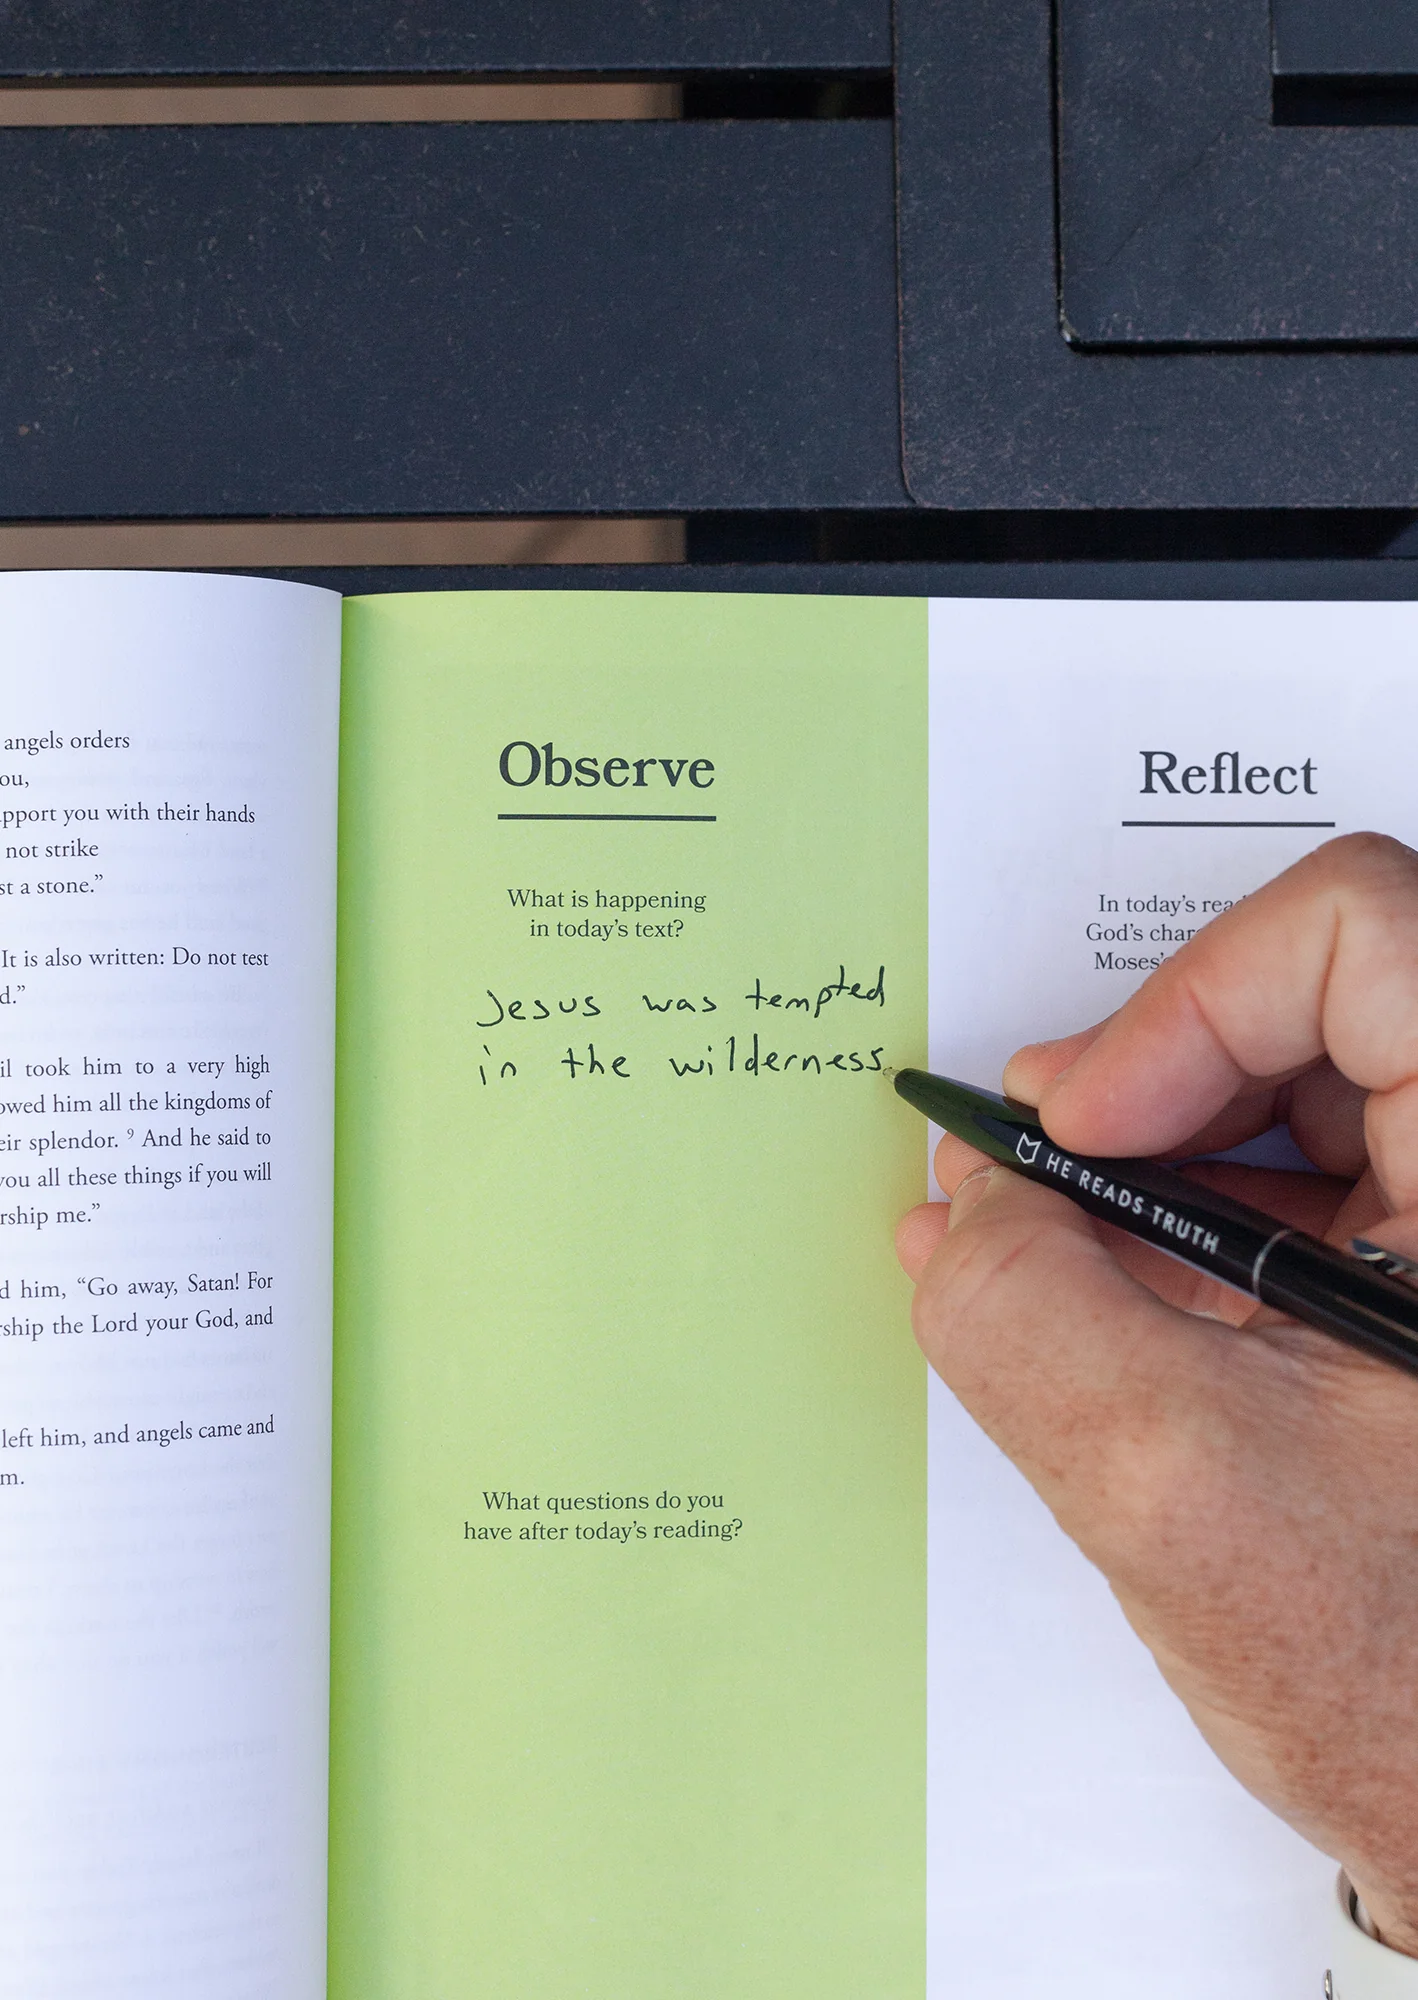 angels orders
ou,
pport you with their hands
not strike
st a stone.”
It is also written: Do not test
d.”
il took him to a very high
owed him all the kingdoms of
eir splendor. ⁹ And he said to
you all these things if you will
rship me.”
d him, “Go away, Satan! For
rship the Lord your God, and
left him, and angels came and
m.
Observe
What is happening
in today’s text?
Jesus was tempted
in the wilderness.
What questions do you
have after today’s reading?
Reflect
In today’s
God’s
Moses’
HE READS TRUTH